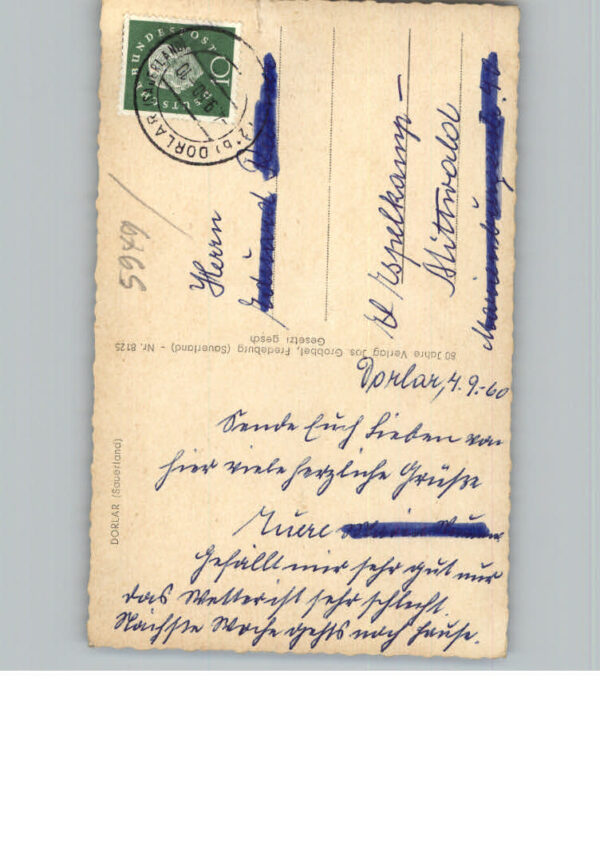 DORLAR (Sauerland)
Dorlar, 4.9.-60
Sende Euch Lieben von
hier viele herzliche Grüße
Eure
Gefällt mir sehr gut nur
das Wetter ist sehr schlecht.
Nächste Woche gehts nach Hause.
80 Jahre Verlag Jos. Grobbel, Fredeburg (Sauerland) - Nr. 8125
Gesetzl gesch
5949/
DEUTSCHE BUNDESPOST
10
DORLAR (SAUERLAND)
Herrn
Espelkamp-
Mittwald